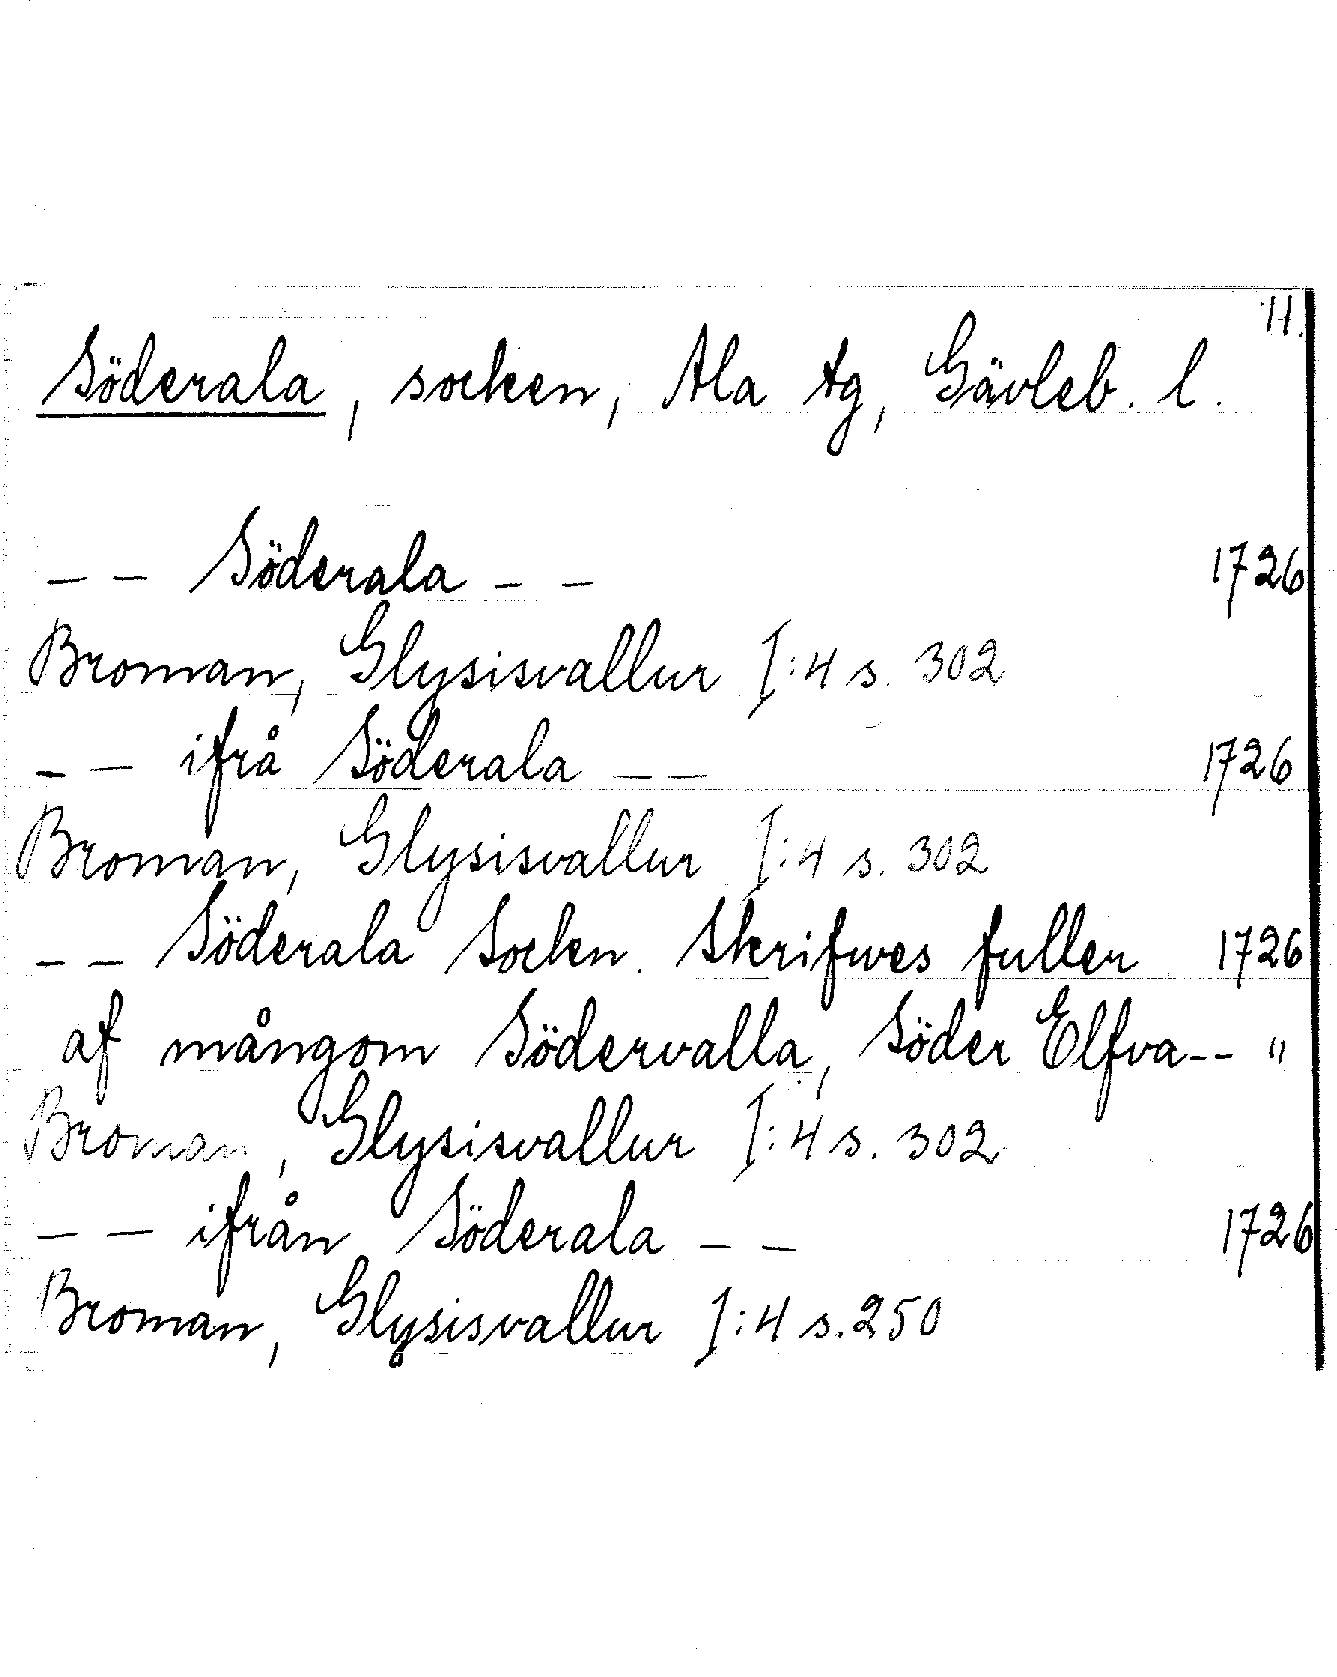 11.
Söderala, socken, Ala tg, Gävleb. l.
– – Söderala – – 1726
Broman, Glysisvallur I:4 s. 302
– – ifrå Söderala – – 1726
Broman, Glysisvallur I:4 s. 302
– – Söderala Socken. Skrifwes fuller 1726
af mångom Södervalla, Söder Elfva – – "
Broman, Glysisvallur I:4 s. 302
– – ifrån Söderala – – 1726
Broman, Glysisvallur I:4 s. 250